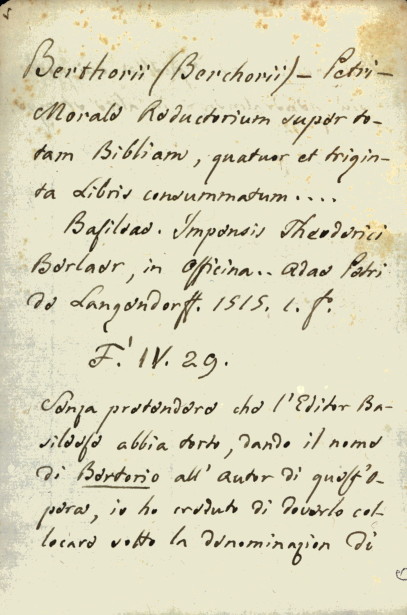 Berthorii (Berchorii) – Petri –
Morale Reductorium super to-
tam Bibliam, quatuor et trigin-
ta Libris consummatum....
Basileae. Impensis Theoderici
Berlaer, in officina.. Adae Petri
de Langendorff. 1515. 1. f.
F. IV. 29.
Senza pretendere che l'Editor Ba-
sileese abbia torto, dando il nome
di Bertorio all'Autor di quest'O-
pera, io ho creduto di doverlo col-
locare sotto la denominazion di